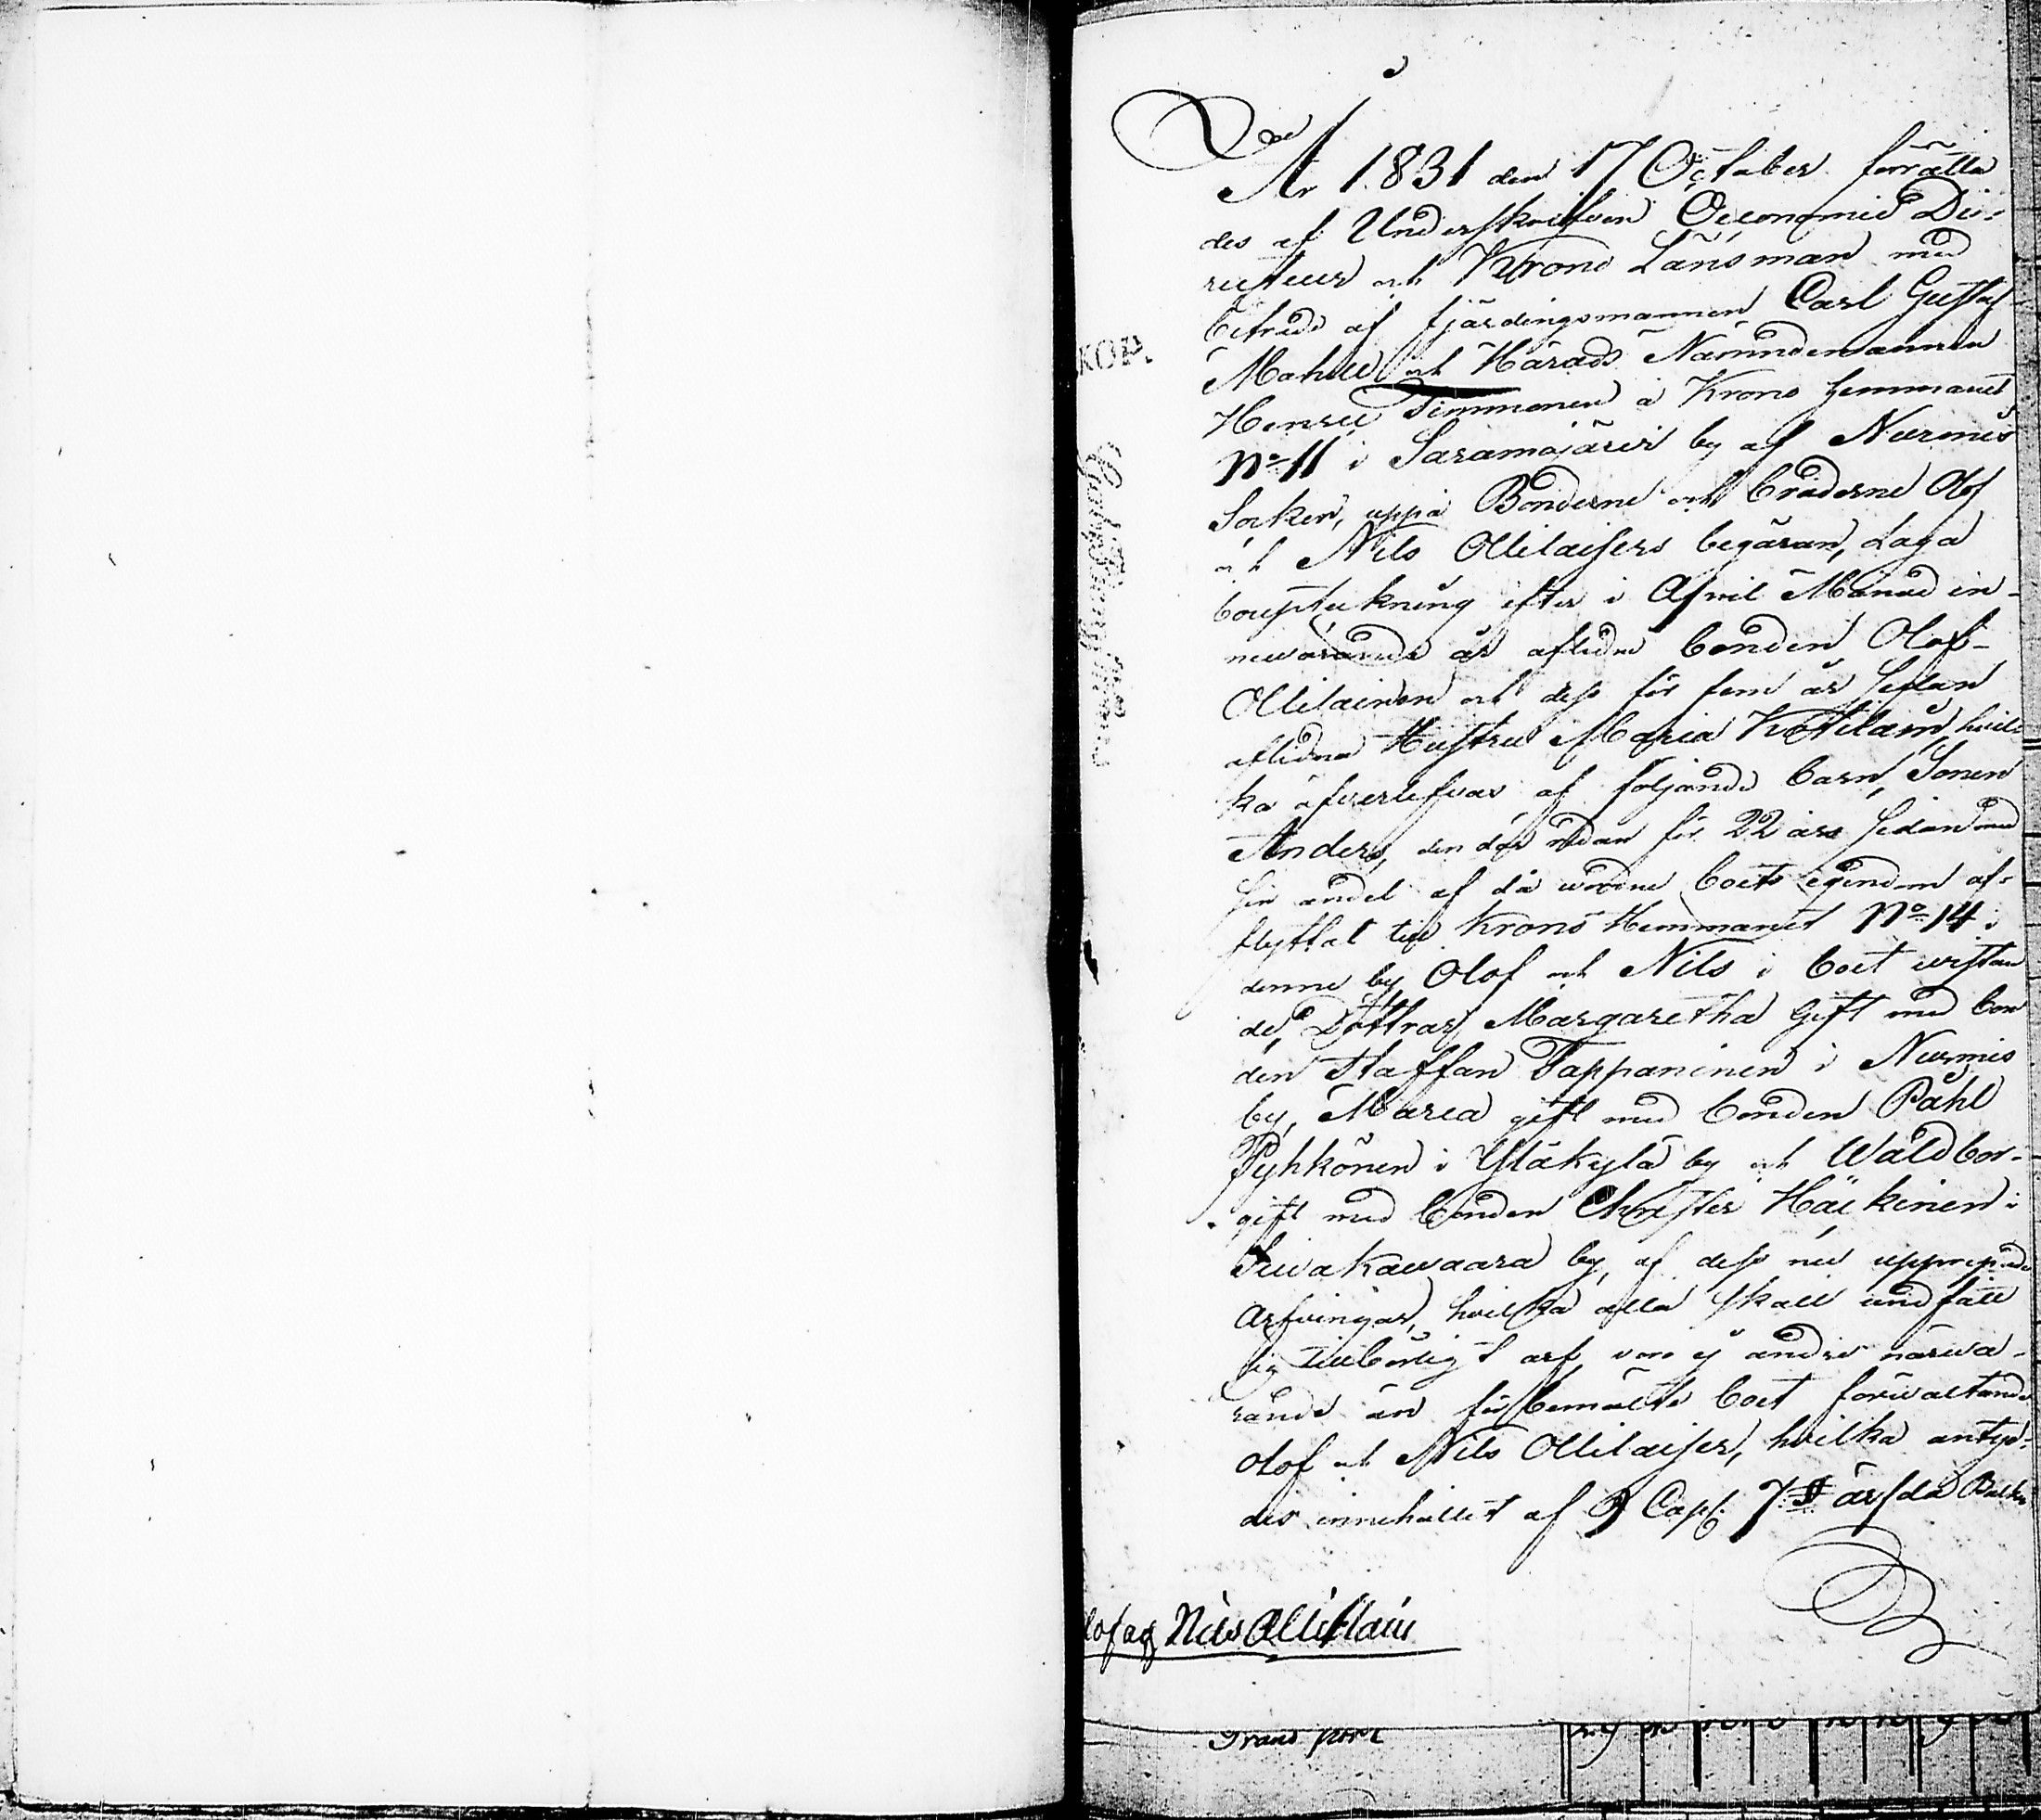 År 1831 den 17 October förrätta
des af Underskrifven Oeconomie Di-
recteur och Krono Länsman med
biträde af fjärdingsmannen Carl Gustaf
KOP.
Mahlu och Härads Nämndemannen
Henric Timmonen å Krono hemmanet
No 11 i Saramojärvi by af Nurmis
Socken, uppå Bönderne och bröderne Olof
och Nils Ollilaisers begäran, Laga
bouptekning efter i April Månad in-
newarande år aflidne bonden Olof
Ollilainen och dess för fem år sedan
aflidna Hustru Maria Kottilain, hvil-
ka öfverlefvas af följande barn, Sonen
Anders, den där redan för 22 års sedan med
sin andel af då warne boets egendom af-
flyttat till Krono Hemmanet No 14 i
denne by Olof och Nils i boet wistan
de, Döttrar Margaretha Gift med bon
den Staffan Tappaninen i Nurmis
by, Maria gift med bonden Påhl
Pyhkönen i Yläkylä by och Waldbor-
gift med bonden Christer Häikinen i
Siwakawaara by, af desse nu uppnepnde
arfvingar, hvilka alla skall undfått
sig tillbörligt arf voro ej andre närwa-
rande än förbemälte boet förwaltande
Olof och Nils Ollilaiser, hvilka antyd-
des innehållet af 9 Cap. 7 § ärfda Balken
lof och Nils Ollilain